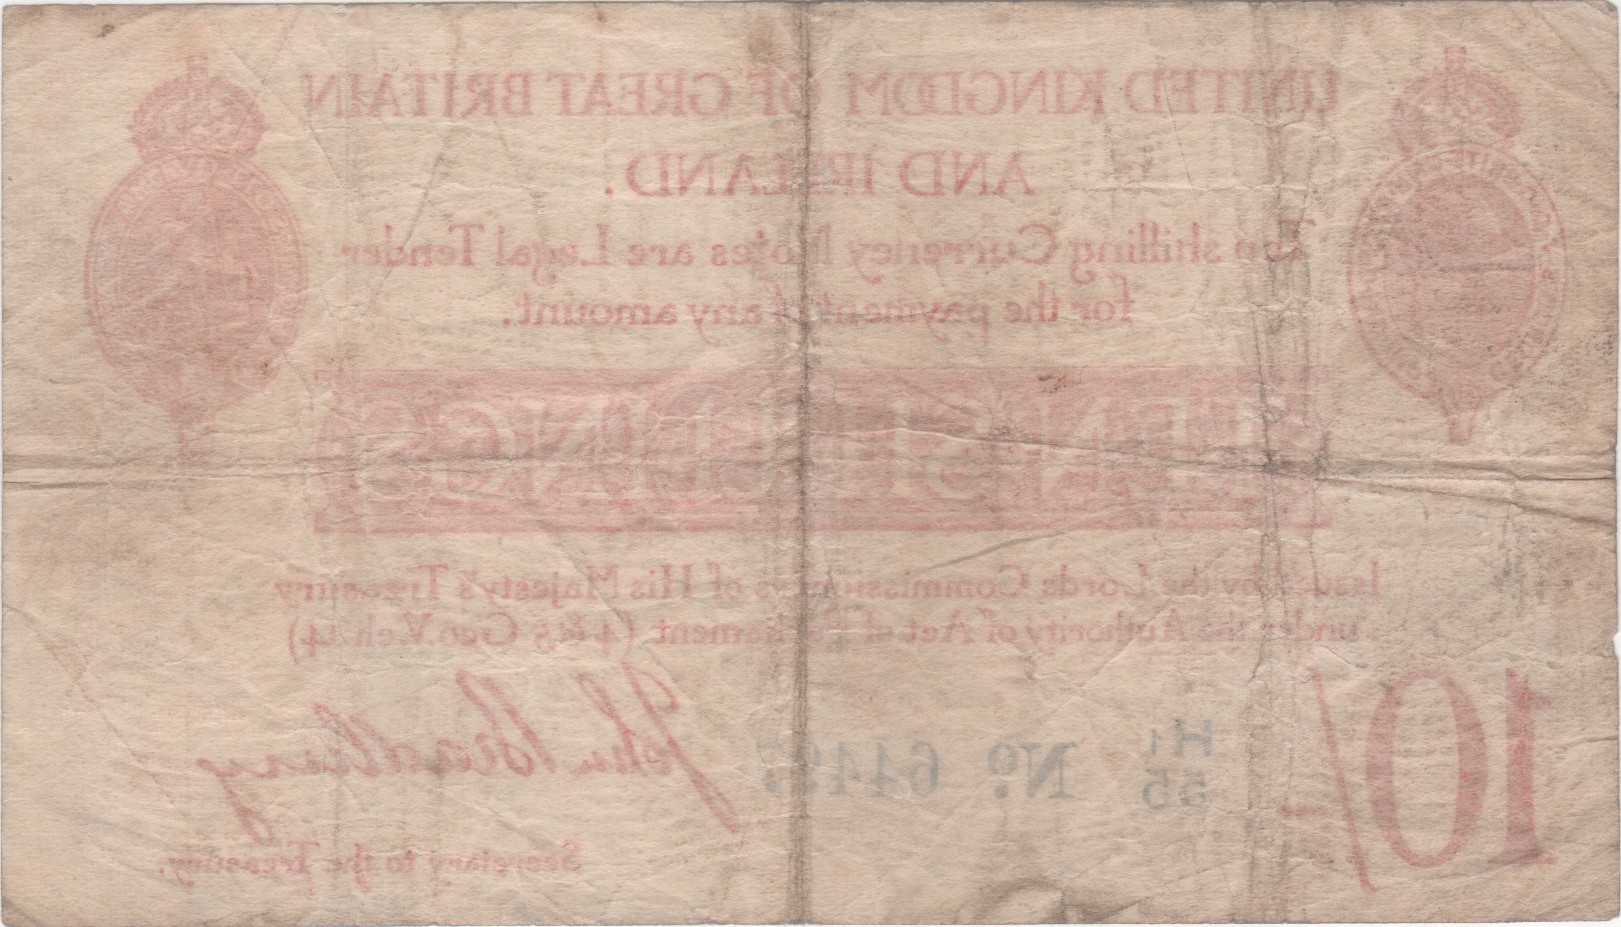 UNITED KINGDOM OF GREAT BRITAIN
AND IRELAND.
Ten shilling Currency Notes are Legal Tender
for the payment of any amount.
TEN SHILLINGS
Issued by the Lords Commissioners of His Majesty's Treasury
under the Authority of Act of Parliament (4 & 5 Geo. V. ch. 14)
10/-
H1
55
Nº.
John Bradbury
Secretary to the Treasury.